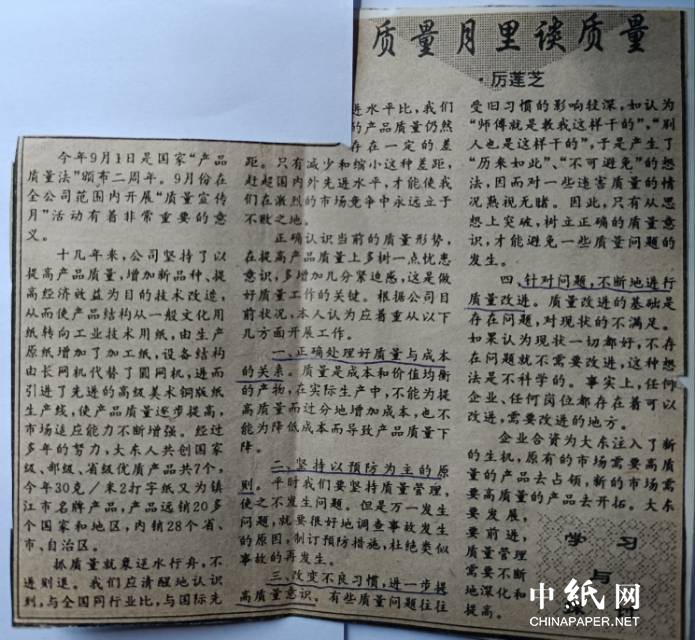 质量月里谈质量
·厉莲芝
今年9月1日是国家“产品
质量法”颁布二周年。9月份在
全公司范围内开展“质量宣传
月”活动有着非常重要的意
义。
十几年来，公司坚持了以
提高产品质量，增加新品种、提
高经济效益为目的技术改造，
从而使产品结构从一般文化用
纸转向工业技术用纸，由生产
原纸增加了加工纸，设备结构
由长网机代替了圆网机，进而
引进了先进的高级美术铜版纸
生产线，使产品质量逐步提高，
市场适应能力不断增强。经过
多年的努力，大东人共创国家
级、部级、省级优质产品共7个，
今年30克／米2打字纸又为镇
江市名牌产品，产品远销20多
个国家和地区，内销28个省、
市、自治区。
抓质量就象逆水行舟，不
进则退。我们应清醒地认识
到，与全国同行业比，与国际先
进水平比，我们
的产品质量仍然
存在一定的差
距。只有减少和缩小这种差距，
赶超国内外先进水平，才能使我
们在激烈的市场竞争中永远立于
不败之地。
正确认识当前的质量形势，
在提高产品质量上多树一点忧患
意识，多增加几分紧迫感，这是做
好质量工作的关键。根据公司目
前状况，本人认为应着重从以下
几方面开展工作。
一、正确处理好质量与成本
的关系。质量是成本和价值均衡
的产物，在实际生产中，不能为提
高质量而过分地增加成本，也不
能为降低成本而导致产品质量下
降。
二、坚持以预防为主的原
则。平时我们要坚持质量管理，
使之不发生问题。但是万一发生
问题，就要很好地调查事故发生
的原因，制订预防措施，杜绝类似
事故的再发生。
三、改变不良习惯，进一步提
高质量意识。有些质量问题往往
受旧习惯的影响较深，如认为
“师傅就是教我这样干的”，“别
人也是这样干的”，于是产生了
“历来如此”、“不可避免”的想
法，因而对一些违害质量的情
况熟视无睹。因此，只有从思
想上突破，树立正确的质量意
识，才能避免一些质量问题的
发生。
四、针对问题，不断地进行
质量改进。质量改进的基础是
存在问题，对现状的不满足。
如果认为现状一切都好，不存
在问题就不需要改进，这种想
法是不科学的。事实上，任何
企业、任何岗位都存在着可以
改进，需要改进的地方。
企业合资为大东注入了新
的生机，原有的市场需要高质
量的产品去占领，新的市场需
要高质量的产品去开拓。大东
要发展，
要前进，
质量管理
需要不断
地深化和
提高。
学习
与
中纸网
CHINAPAPER.NET